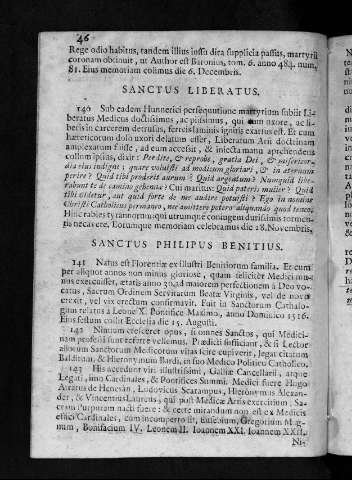 46
Rege odio habitus, tandem illius iussu dira supplicia passus, martyrii
coronam obtinuit, ut Author est Baronius, tom. 6. anno 484. num.
81. Eius memoriam colimus die 6. Decembris.
SANCTUS LIBERATUS.
140 Sub eadem Hunnerici persequutione martyrium subiit Li-
beratus Medicus doctissimus, ac piissimus, qui cum uxore, ac li-
beris in carcerem detrusus, ferreis laminis ignitis exartus est. Et cum
hæreticorum dolo uxori delatum esset, Liberatum Arii doctrinam
amplexatum fuisse, ad eum accessit, & iniecta manu aprehendens
collum ipsius, dixit: Perdite, & reprobe, gratia Dei, & misericor-
dia eius indigne: quare voluisti ad modicum gloriari, & in æternum
perire? Quid tibi proderit aurum? Quid argentum? Numquid libe-
rabunt te de camino gehennæ? Cui maritus: Quid pateris mulier? Quid
tibi videtur, aut quid forte de me audire potuisti? Ego in nomine
Christi Catholicus permaneo, nec amittere potero aliquando quod teneo.
Hinc rabies tyrannorum qui utrumque coniugem durissimis tormen-
tis necavere. Eorumque memoriam celebramus die 28. Novembris.
SANCTUS PHILIPUS BENITIUS.
141 Natus est Florentiæ ex illustri Benitiorum familia. Et cum
per aliquot annos non minus gloriose, quam feliciter Medici mu-
nus exercuisset, ætatis anno 30. ad maiorem perfectionem à Deo vo-
catus, Sacrum Ordinem Servitarum Beatæ Virginis, vel de novo
erexit, vel vix erectum confirmavit. Fuit in Sanctorum Cathalo-
gum relatus à Leone X. Pontifice Maximo, anno Domini 1516.
Eius festum colit Ecclesia die 15. Augusti.
142 Nimium cresceret opus, si omnes Sanctos, qui Medici-
nam professi sunt referre vellemus. Prædicti sufficiant, & si Lector
aliorum Sanctorum Medicorum vitas scire cupiverit, legat citatum
Balditnan, & Hieronymum Bardi, in suo Medico Politico Catholico.
143 His accedunt viri illustrissimi, Galliæ Cancellarii, atque
Legati, imo Cardinales, & Pontifices Summi. Medici fuere Hugo
Atratus de Hevexàn, Ludovicus Scarampus, Hieronymus Alexan-
der, & Vincentius Laureus, qui post Medicæ Artis exercitium, Sa-
cram Purpuram nacti fuere: & certe mirandum non est ex Medicis
effici Cardinales, cum incompertum sit, Eusebium, Gregorium Mag-
num, Bonifacium IV. Leonem II. Ioannem XXI. Ioannem XXII.
Ni-